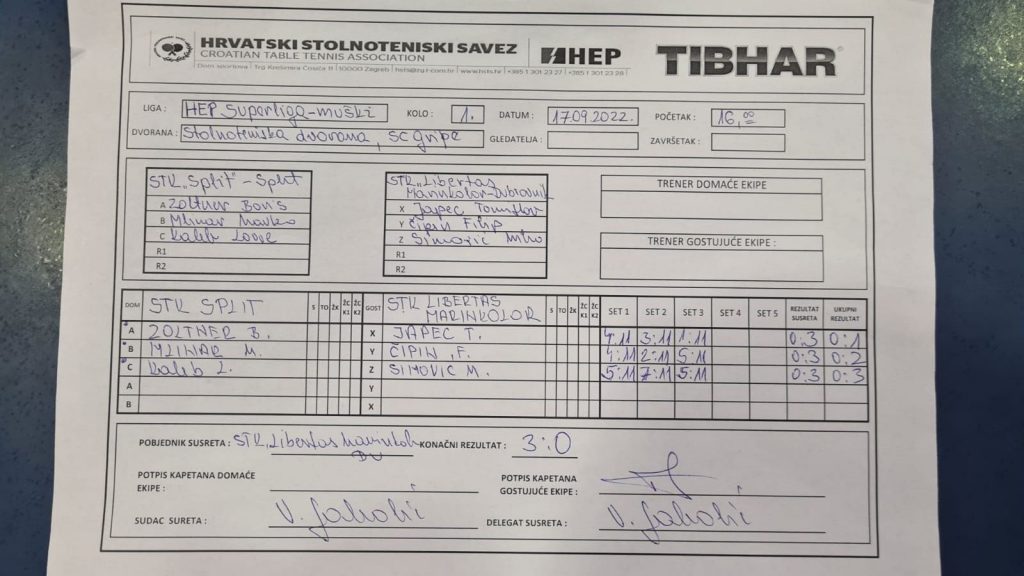 HRVATSKI STOLNOTENISKI SAVEZ
CROATIAN TABLE TENNIS ASSOCIATION
HEP
TIBHAR
LIGA : HEP Superliga-muški KOLO : 1. DATUM : 17.09.2022. POČETAK : 16,00
DVORANA : Stolnoteniska dvorana, SC Gripe GLEDATELJA : ZAVRŠETAK :
STK „Split" - Split
A Zoltner Boris
B Mlinar Marko
C Kaleb
R1
R2
STK „Libertas
Marinkolor-Dubrovnik
X Japec Tomislav
Y Čipin Filip
Z Simović Miho
R1
R2
TRENER DOMAĆE EKIPE
TRENER GOSTUJUĆE EKIPE :
DOM STK SPLIT S TO ŽK ŽC K1 ŽC K2 GOST STK LIBERTAS MARINKOLOR S TO ŽK ŽC K1 ŽC K2 SET 1 SET 2 SET 3 SET 4 SET 5 REZULTAT SUSRETA UKUPNI REZULTAT
A ZOLTNER B. X JAPEC T. 4:11 3:11 1:11 0:3 0:1
B MLINAR M. Y ČIPIN F. 4:11 2:11 5:11 0:3 0:2
C Kaleb L. Z SIMOVIĆ M. 5:11 7:11 5:11 0:3 0:3
A Y
B X
POBJEDNIK SUSRETA : STK „Libertas Marinkolor KONAČNI REZULTAT : 3:0
DU
POTPIS KAPETANA DOMAĆE
EKIPE :
POTPIS KAPETANA
GOSTUJUĆE EKIPE :
SUDAC SURETA : DELEGAT SUSRETA :